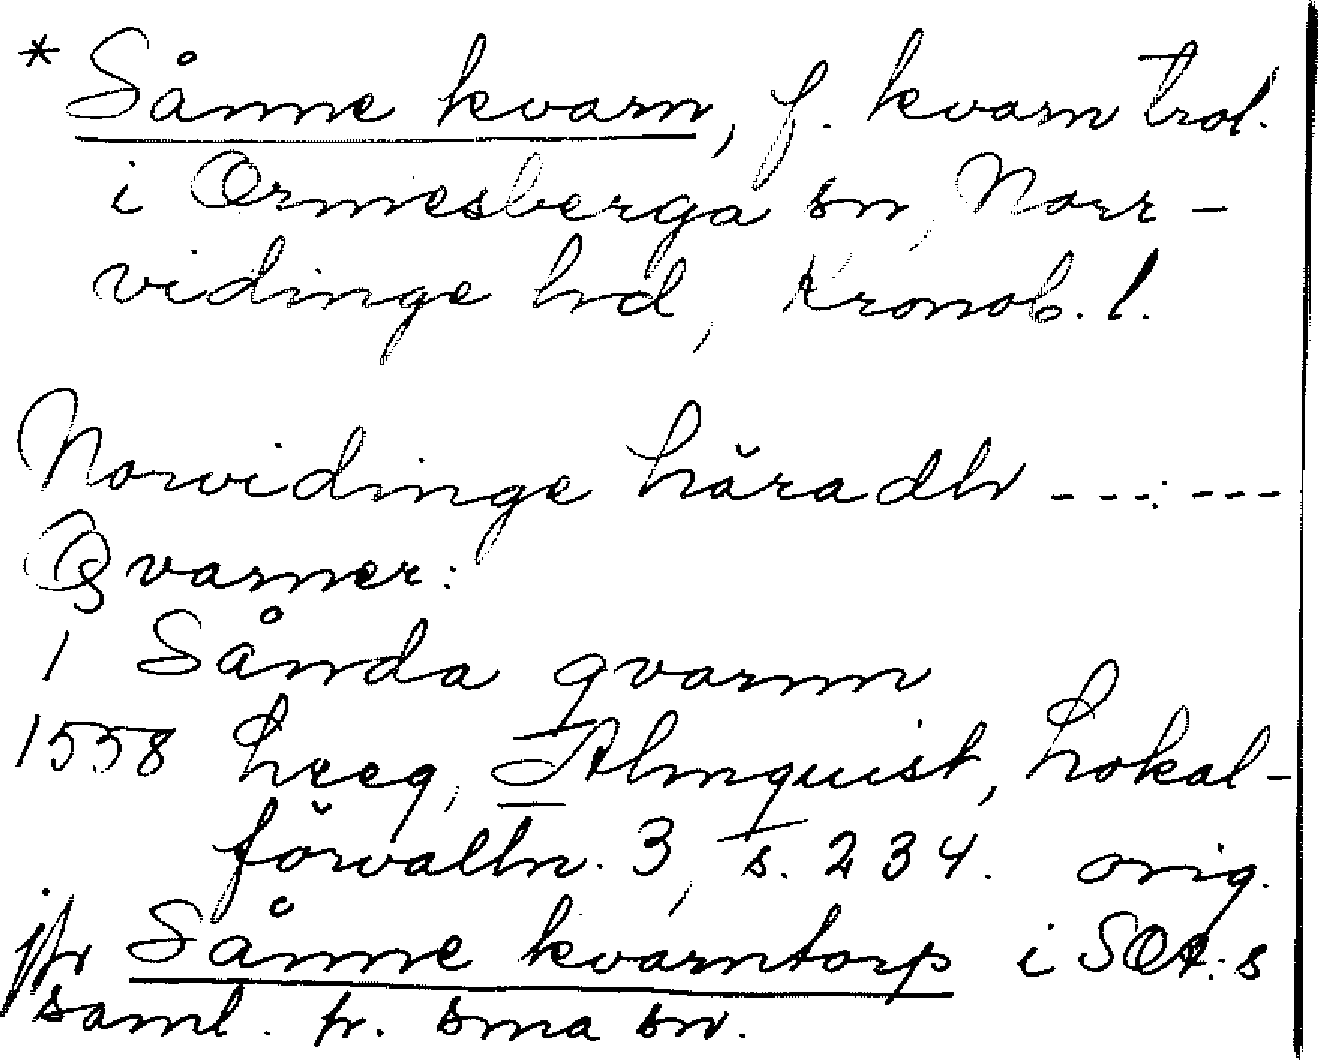 * Sånne kvarn, f. kvarn trol.
i Ormesberga sn, Norr-
vidinge hd, Kronob. l.
Norvidinge häradh ---:---
Qvarner:
1 Sånda qvarnn
1558 Almquist, Lokal-
förvaltn. 3, s. 234. orig.
jfr Sånne kvarntorp i SOA:s
saml. fr. sma sn.